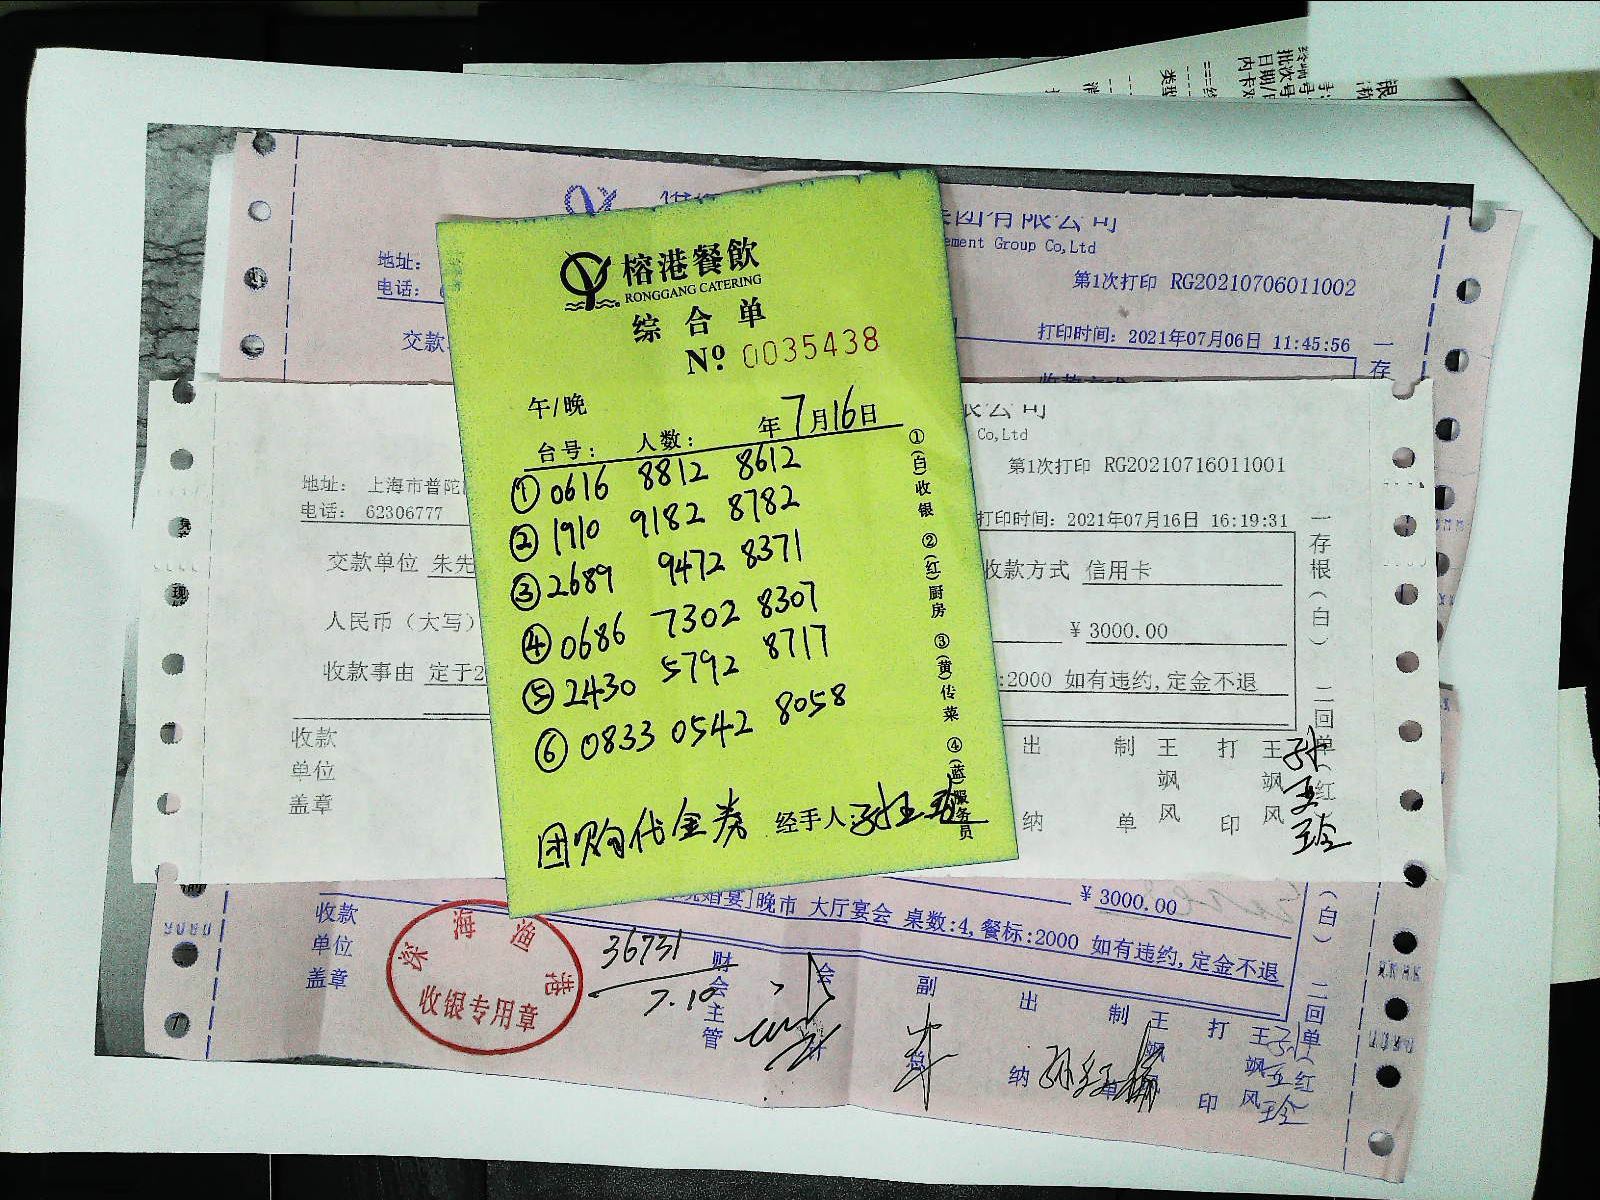 集团有限公司
ement Group Co,Ltd
地址:
电话:
第1次打印 RG20210706011002
交款
打印时间: 2021年07月06日 11:45:56
榕港餐飲
RONGGANG CATERING
综合单
Nº 0035438
午/晚
台号: 人数: 年7月16日
① 0616 8812 8612
② 1910 9182 8782
③ 2689 9472 8371
④ 0686 7302 8307
⑤ 2430 5792 8717
⑥ 0833 0542 8058
团购代金券 经手人:孙玉玲
①(白)收银 ②(红)厨房 ③(黄)传菜 ④(蓝)服务员
限公司
Co,Ltd
第1次打印 RG20210716011001
地址: 上海市普陀
电话: 62306777
打印时间: 2021年07月16日 16:19:31
交款单位 朱先
收款方式 信用卡
人民币(大写)
¥ 3000.00
收款事由 定于2
:2000 如有违约,定金不退
一存根(白) 二回单(红)
收款单位盖章
出纳 制单 王飒风 打印 王飒风 孙玉玲
¥ 3000.00
晚婚宴]晚市 大厅宴会 桌数:4,餐标:2000 如有违约,定金不退
(白) 二回单(红)
收款单位盖章
深海渔港
收银专用章
36731
7.10
财会主管 会计 副总 出纳 制单 王飒风 打印 王飒风
孙玉玲